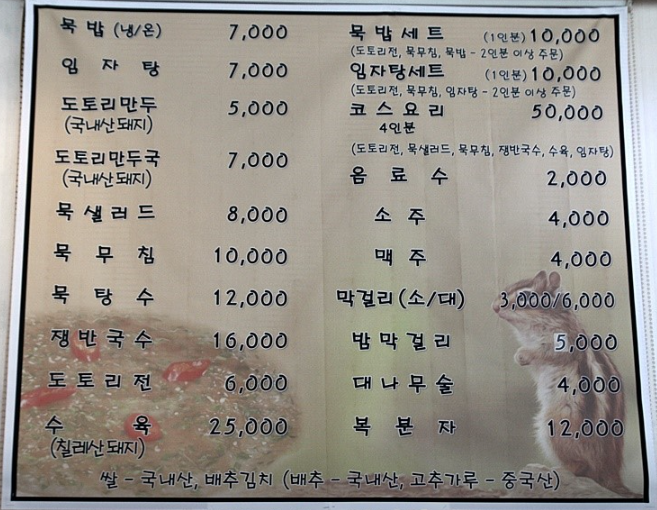 묵밥 (냉/온) 7,000
임자탕 7,000
도토리만두 5,000
(국내산돼지)
도토리만두국 7,000
(국내산돼지)
묵샐러드 8,000
묵무침 10,000
묵탕수 12,000
쟁반국수 16,000
도토리전 6,000
수육 25,000
(칠레산돼지)
묵밥세트 (1인분) 10,000
(도토리전, 묵무침, 묵밥 - 2인분 이상 주문)
임자탕세트 (1인분) 10,000
(도토리전, 묵무침, 임자탕 - 2인분 이상 주문)
코스요리 50,000
4인분
(도토리전, 묵샐러드, 묵무침, 쟁반국수, 수육, 임자탕)
음료수 2,000
소주 4,000
맥주 4,000
막걸리(소/대) 3,000/6,000
밤막걸리 5,000
대나무술 4,000
복분자 12,000
쌀 - 국내산, 배추김치 (배추 - 국내산, 고추가루 - 중국산)